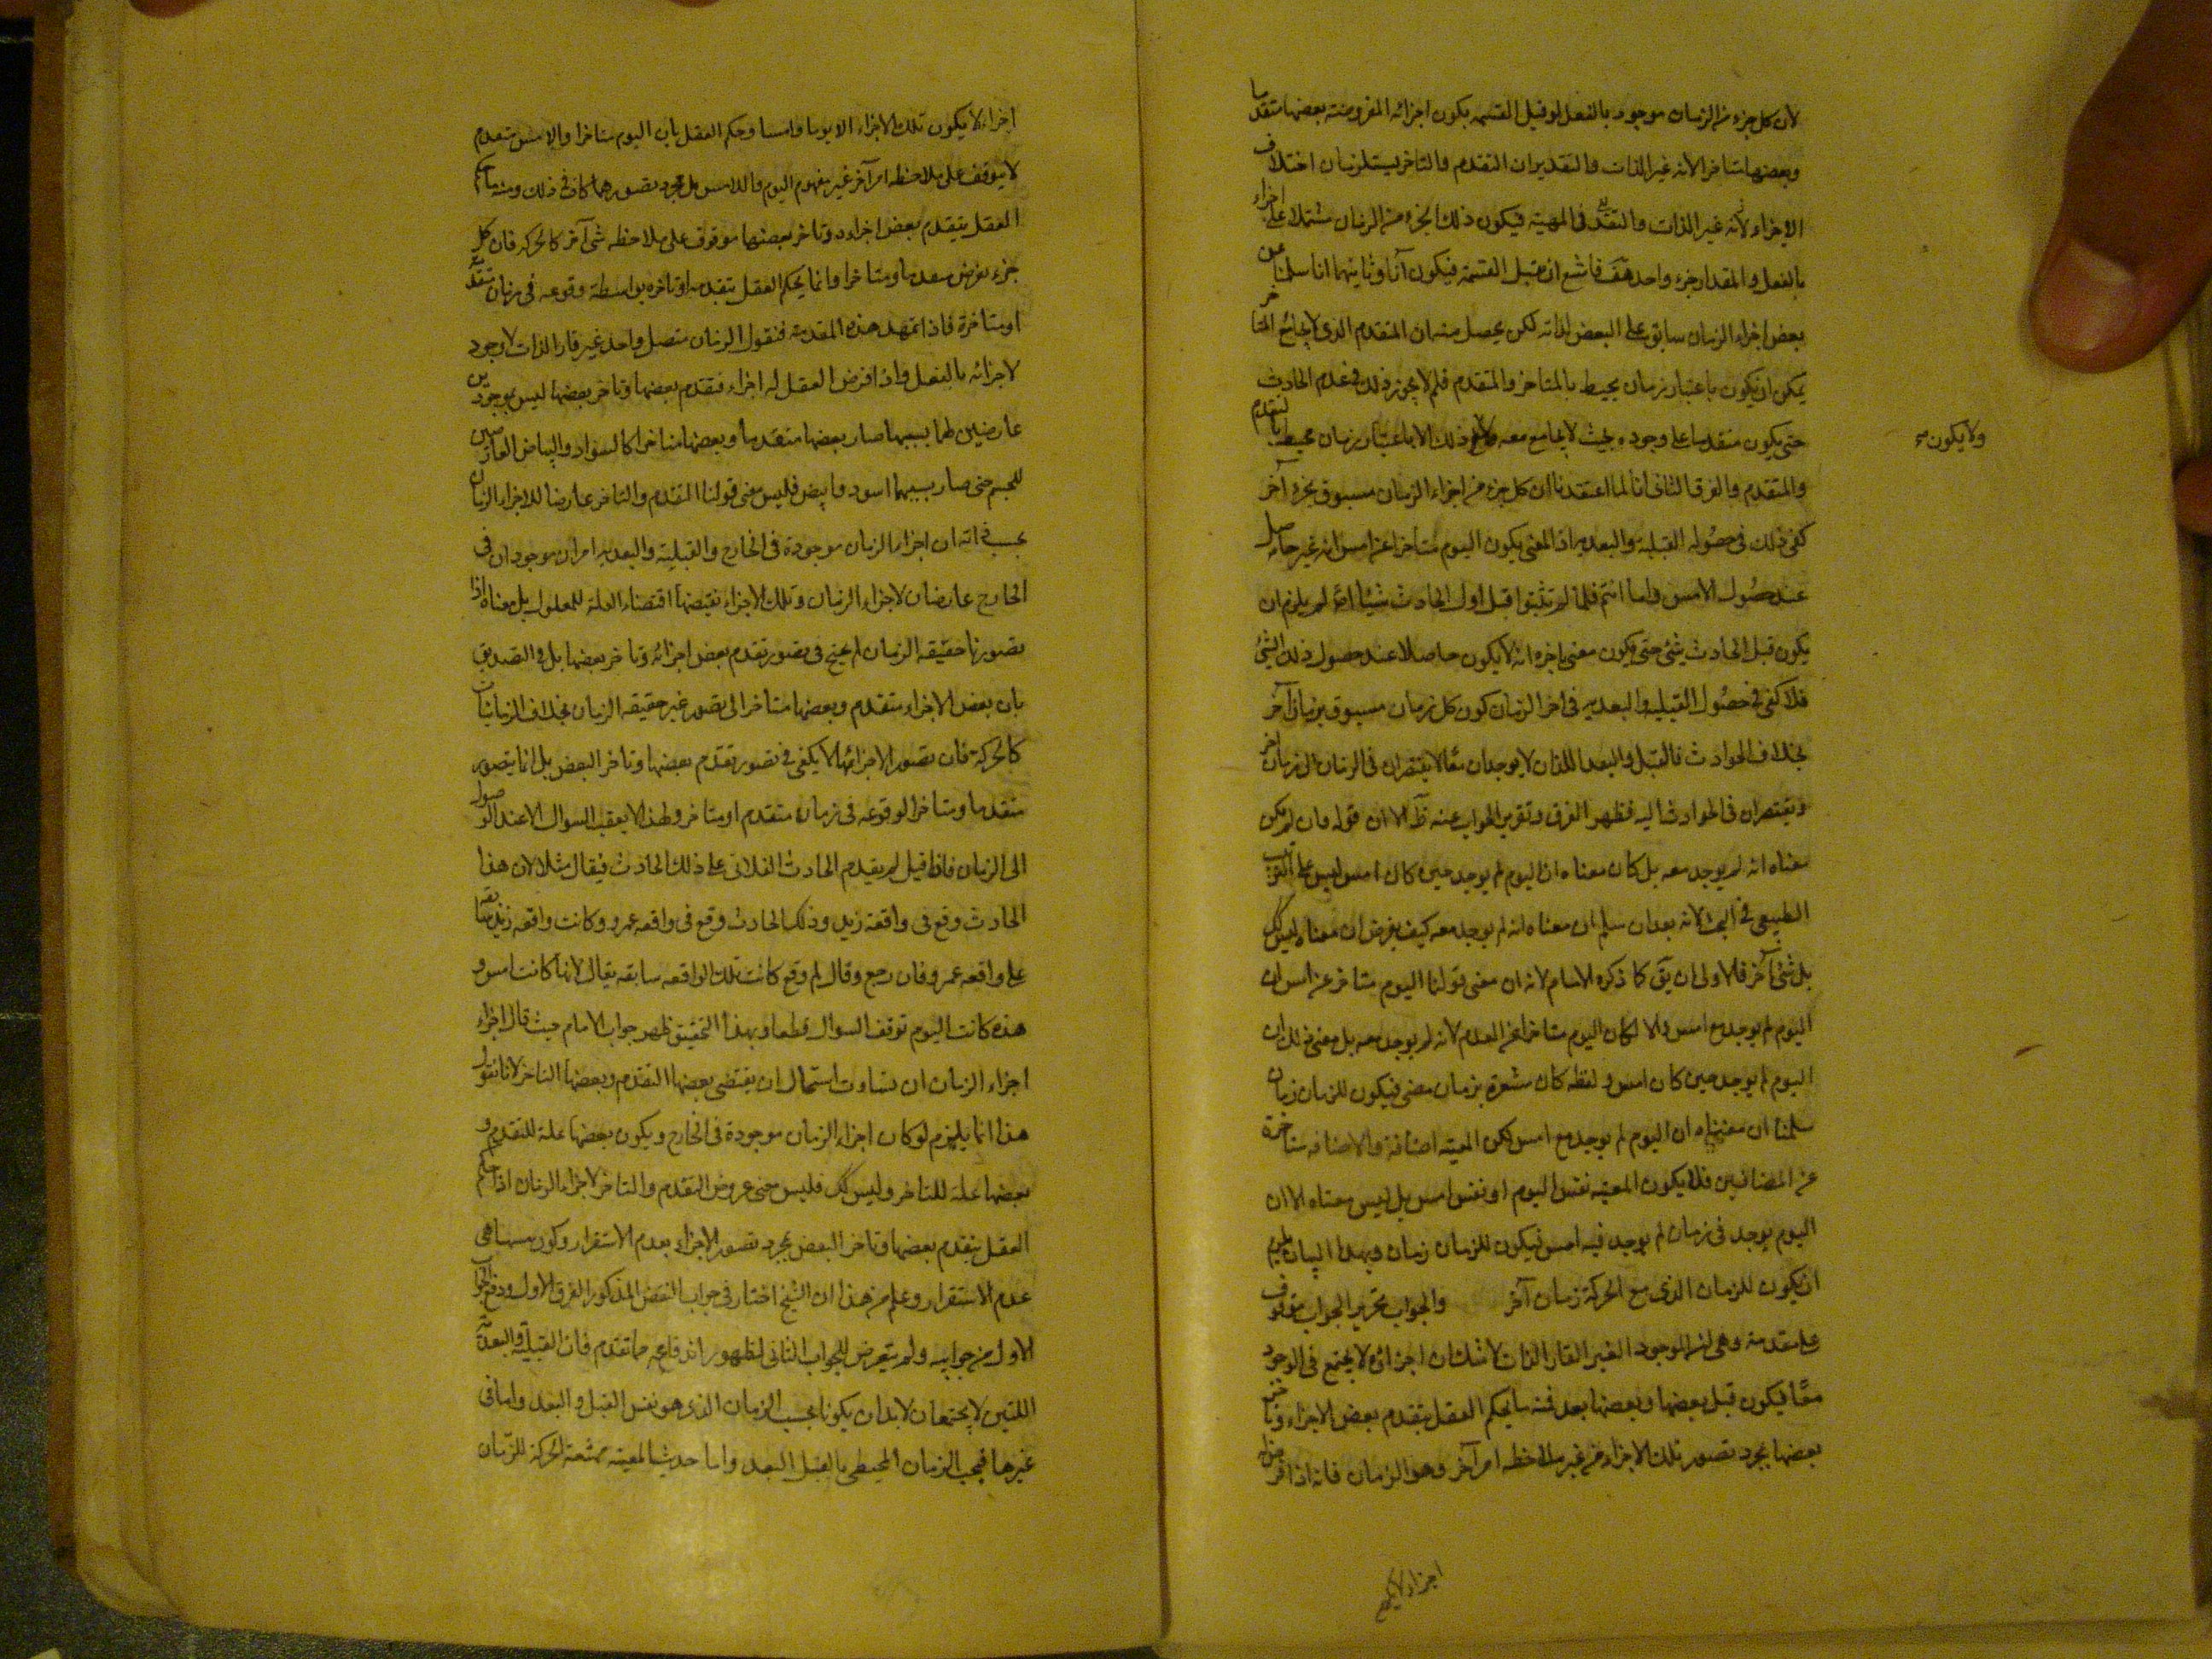 لان كل جزء من الزمان موجود بالفعل لو قبل القسمه يكون اجزائه المفروضه بعضها متقدما
وبعضها متاخرا لانه غير الذات والتقدير ان التقدم والتاخر يستلزمان اختلاف
الاجزاء لانه غير الذات والتقدم فى المهية فيكون ذلك الجزء من الزمان مشتملا على اجزاء
بالفعل والمقدار جزء واحد هف فامتنع ان يقبل القسمة فيكون آنا وثانيهما انا سلمنا
بعض اجزاء الزمان سابق على البعض لذاته لكن يحصل منه ان المتقدم الذى لا يجامع المتاخر
يمكن ان يكون باعتبار زمان يحيط بالمتاخر والمتقدم فلم لا يجوز ذلك فى عدم الحادث
حتى يكون متقدما على وجوده بحيث لا يجامع معه ذلك الا باعتبار زمان محيط
ولا يكون صح
والمتقدم والفرق الثانى انا لما اعتقدنا ان كل جزء من اجزاء الزمان مسبوق بجزء آخر
كفى ذلك فى حصول القبلية والبعدية اذ المعنى بكون اليوم متاخرا عن امس انه غير حاصل
عند حصول الامس واما انتم فلما لم تثبتوا قبل اول الحادث شيئا اخر لم يلزم ان
يكون قبل الحادث شئ حتى يكون معنى تاخره انه لا يكون حاصلا عند حصول ذلك الشئ
فلا كفى فى حصول القبليه والبعديه فى اجزا الزمان كون كل زمان مسبوق بزمان آخر
بخلاف الحوادث فالقبل والبعد اللذان لا يوجدان معا لا يفتقران فى الزمان الى زمان اخر
ويفتقران فى الحوادث اليه فظهر الفرق وتقرير الجواب عنه ظ الا ان قوله وان لم يكن
معناه انه لم يوجد معه بل كان معناه ان اليوم لم يوجد حين كان امس ليس على الترتيب
الطبيعى فى البحث لانه بعد ان سلم ان معناه انه لم يوجد معه كيف يفرض ان معناه ليس كك
بل شئ آخر فالاولى ان يق كما ذكره الامام لانه ان معنى قولنا اليوم متاخر عن امس ان
اليوم لم يوجد مع امس والا لكان اليوم متاخرا عن العدم لانه لم يوجد معه بل معنى ذلك ان
اليوم لم يوجد حين كان امس ولفظه كان مشعرة بزمان مضى فيكون للزمان زمان
سلمنا ان معناه ان اليوم لم يوجد مع امس لكن المعيه اضافة والاضافه متاخرة
عن المضافين فلا يكون المعيه نفس اليوم او نفس امس بل ليس معناه الا ان
اليوم يوجد فى زمان لم يوجد فيه امس فيكون للزمان زمان وبهذا البيان يلزم
ان يكون للزمان الذى مع الحركة زمان آخر والجواب تحرير الجواب موقوف
على مقدمة وهى ان الموجود الغير القار الذات لا شك ان اجزائه لا يجتمع فى الوجود
معا فيكون قبل بعضها وبعضها بعد فمنه ما يحكم العقل بتقدم بعض الاجزاء وتاخر
بعضها بمجرد تصور تلك الاجزاء من غير ملاحظه امر آخر وهو الزمان فانه اذا فرض له
اجزاء لا يكون
اجزاء لا يكون تلك الاجزاء الا يوما وامسا وحكم العقل بان اليوم متاخرا والامس متقدم
لا يتوقف على ملاحظه امر آخر غير مفهوم اليوم والامس بل مجرد تصورهما كاف فى ذلك ومنه ما يحكم
العقل بتقدم بعض اجزاءه وتاخر بعضها موقوف على ملاحظه شئ آخر كالحركه فان كل
جزء يفرض متقدما ومتاخرا وانما يحكم العقل بتقدمه او تاخره بواسطة وقوعه فى زمان متقدم
او متاخرة فاذا تمهد هذه المقدمة فنقول الزمان متصل واحد غير قار الذات لا وجود
لاجزائه بالفعل واذا فرض العقل له اجزاء فتقدم بعضها وتاخر بعضها ليس بموجودين
عارضين لها بسببهما صار بعضها متقدما وبعضها متاخرا كالسواد والبياض العارضين
للجسم حتى صار بسببهما اسود وابيض فليس معنى قولنا التقدم والتاخر عارضا للاجزاء الزمان
بحسب ذاته ان اجزاء الزمان موجودة فى الخارج والقبلية والبعديه امران موجودان فى
الخارج عارضان لاجزاء الزمان وتلك الاجزاء تقتضيها اقتضاء العلة للمعلول بل معناه اذا
تصورنا حقيقه الزمان لم يحتج فى تصور تقدم بعض اجزائه وتاخر بعضها بل فى التصديق
بان بعض الاجزاء متقدم وبعضها متاخر الى تصور غير حقيقه الزمان بخلاف الزمانيات
كالحركة فان تصور لاجزائها لا يكفى فى تصور تقدم بعضها وتاخر البعض بل انما يتصور
متقدما ومتاخرا لوقوعه فى زمان متقدم او متاخر ولهذا لا يقف السوال الا عند الوصول
الى الزمان فاذا قيل لم يقدم الحادث الفلانى على ذلك الحادث فيقال مثلا لان هذا
الحادث وقع فى واقعة زيد وذلك الحادث وقع فى واقعه عمرو وكانت واقعه زيد سابقه
على واقعه عمرو فان رجع وقال لم وقع كانت تلك الواقعه سابقه يقال لانها كانت امس و
هذه كانت اليوم توقف السوال قطعا وبهذا التحقيق ظهر جواب الامام حيث قال اجزاء
اجزاء الزمان ان تساوت استحال ان يقتضى بعضها التقدم وبعضها التاخر لانا نقول
هذا انما يلزم لو كان اجزاء الزمان موجودة فى الخارج ويكون بعضها علة للتقدم و
بعضها علة للتاخر وليس كك فليس معنى عروض التقدم والتاخر لاجزاء الزمان اذا حكم
العقل بتقدم بعضها وتاخر البعض بمجرد تصور الاجزاء بعدم الاستقرار وكون مهيتها هى
عدم الاستقرار وعلم من هذا ان الشيخ اختار فى جواب النقض المذكور الفرق الاول ودفع الجواب
الاول من جوابيه ولم يتعرض للجواب الثانى لظهور اندفاعه مما تقدم فان القبلية والبعدية
اللتين لا يجتمعان لا بد ان يكونا بحسب الزمان الذى هو نفس القبل والبعد واما فى
غيرها فبحسب الزمان المحيط بالقبل والبعد واما حديث المعيه فمعية الحركة للزمان